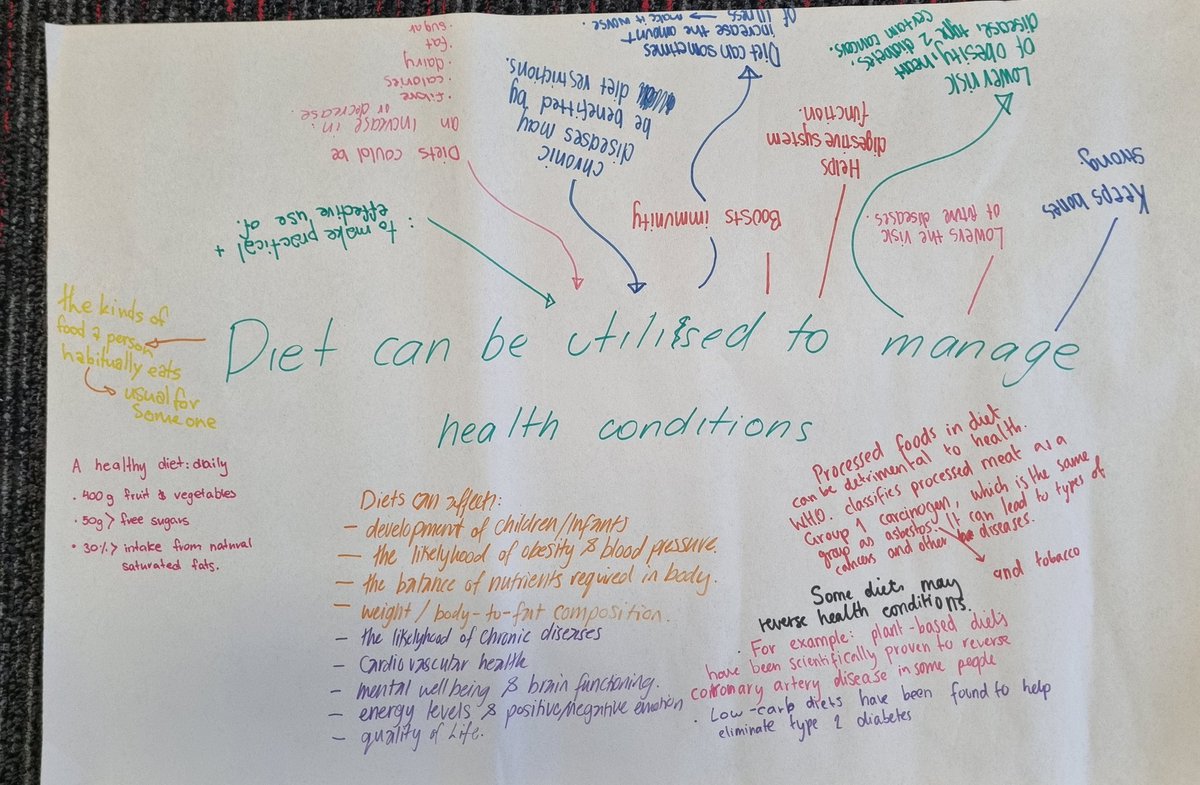 Diet can be utilised to manage
health conditions
the kinds of
food a person
habitually eats
usual for
someone
: to make practical +
effective use of.
Diets could be
an increase in
or decrease.
· fibre
· calories
· dairy
· fat
· sugar
chronic
diseases may
be benefitted by
diet restrictions.
Diet can sometimes
increase the amount
of illness → make it worse.
Boosts
immunity
Helps
digestive system
function.
Lower risk
of obesity, heart
disease, type 2 diabetes,
certain cancers.
Lowers the risk
of future diseases.
Keeps bones
strong.
A healthy diet: daily
· 400g fruit & vegetables
· 50g > free sugars
· 30% > intake from natural
saturated fats.
Diets can affect:
– development of children/infants
– the likelyhood of obesity & blood pressure.
– the balance of nutrients required in body.
– weight / body-to-fat composition.
– the likelyhood of chronic diseases
– Cardiovascular health
– mental wellbeing & brain functioning.
– energy levels & positive/negative emotion
– quality of Life.
Processed foods in diet
can be detrimental to health.
WHO. classifies processed meat as a
Group 1 carcinogen, which is the same
group as asbestos. It can lead to types of
cancers and other diseases.
and tobacco
Some diets may
reverse health conditions.
· For example: plant-based diets
have been scientifically proven to reverse
coronary artery disease in some people
· Low-carb diets have been found to help
eliminate type 2 diabetes